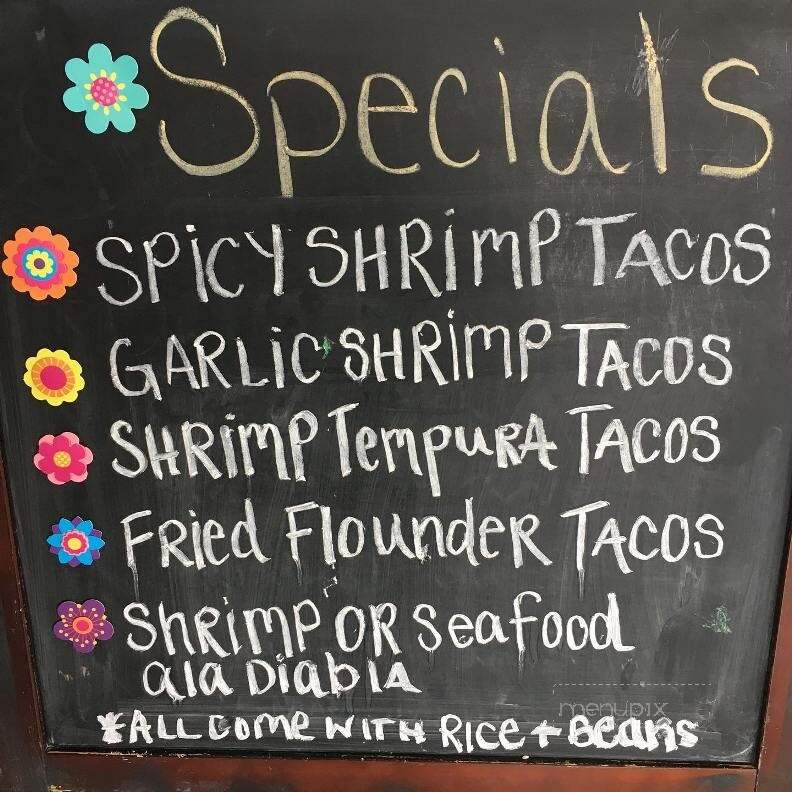 Specials
SPiCY SHRimP TACOS
GARLiC SHRimP TACOS
SHRimP TempuRA TACOS
FRied FloundeR TACOS
ShRimp OR Seafood
ala DiablA
*ALL COME WITH RICe + Beans
menupix